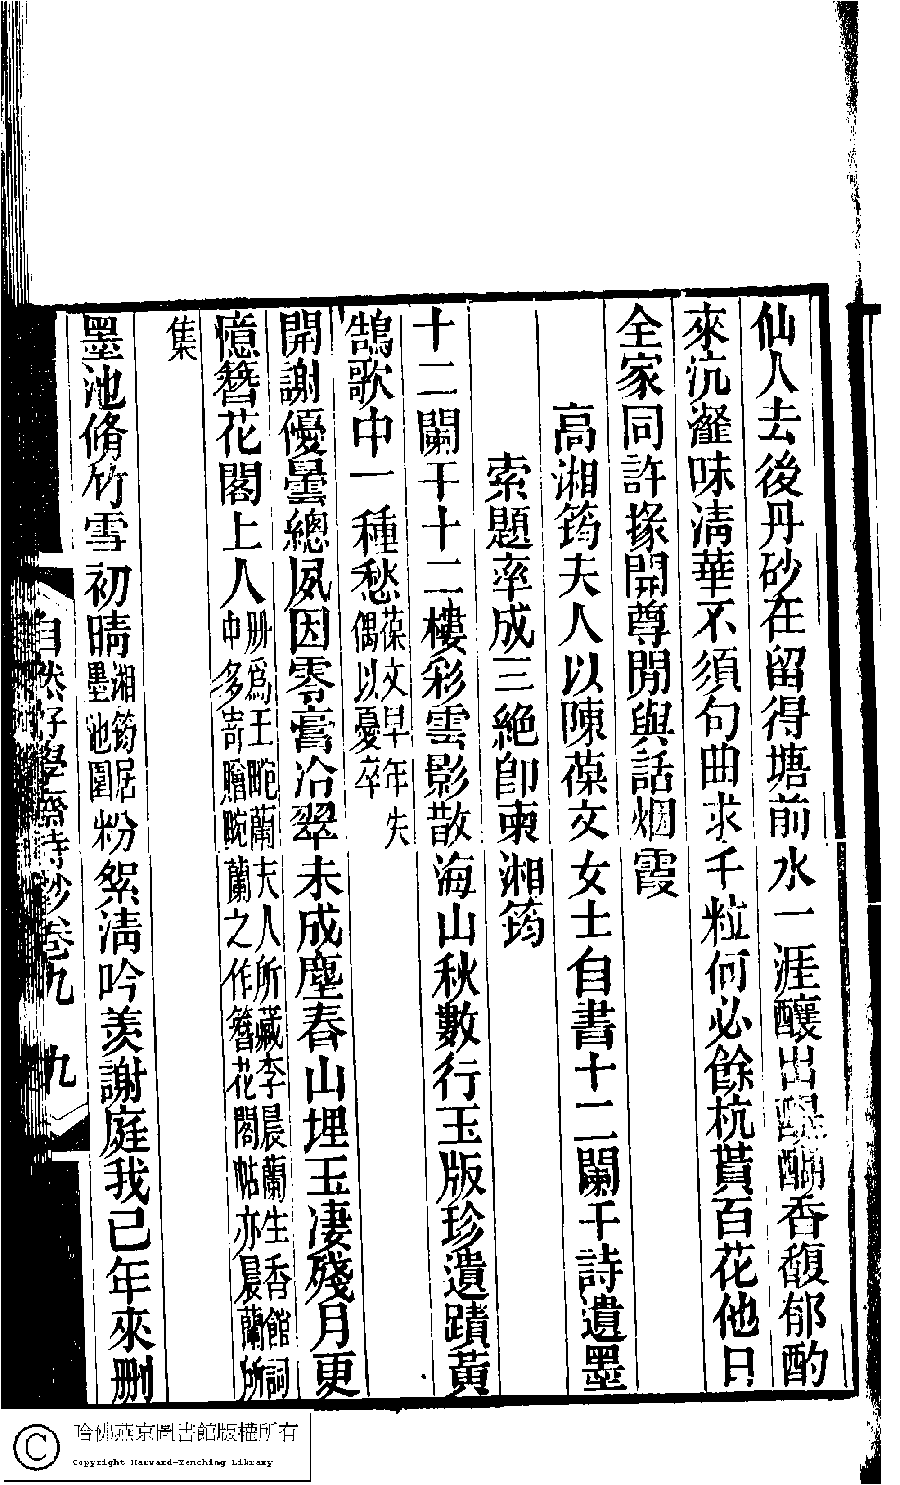 仙人去後丹砂在留得塘前水一涯釀出醍醐香馥郁酌
來沆瀣味清華不須句曲求千粒何必餘杭貰百花他日
全家同許掾開尊閒與話烟霞
高湘筠夫人以陳葆文女士自書十二闌干詩遺墨
索題率成三絕卽柬湘筠
十二闌干十二樓彩雲影散海山秋數行玉版珍遺蹟黃
鵠歌中一種愁葆文早年失偶以憂卒
開謝優曇總夙因零膏冷翠未成塵春山埋玉凄殘月更
憶簪花閣上人册爲王畹蘭夫人所藏李晨蘭生香館詞中多寄贈畹蘭之作簪花閣帖亦晨蘭所
集
墨池脩竹雪初晴湘筠居墨池園粉絮清吟羨謝庭我已年來删
自然好學齋詩鈔卷九 九
哈佛燕京圖書館版權所有
Copyright Harvard-Yenching Library